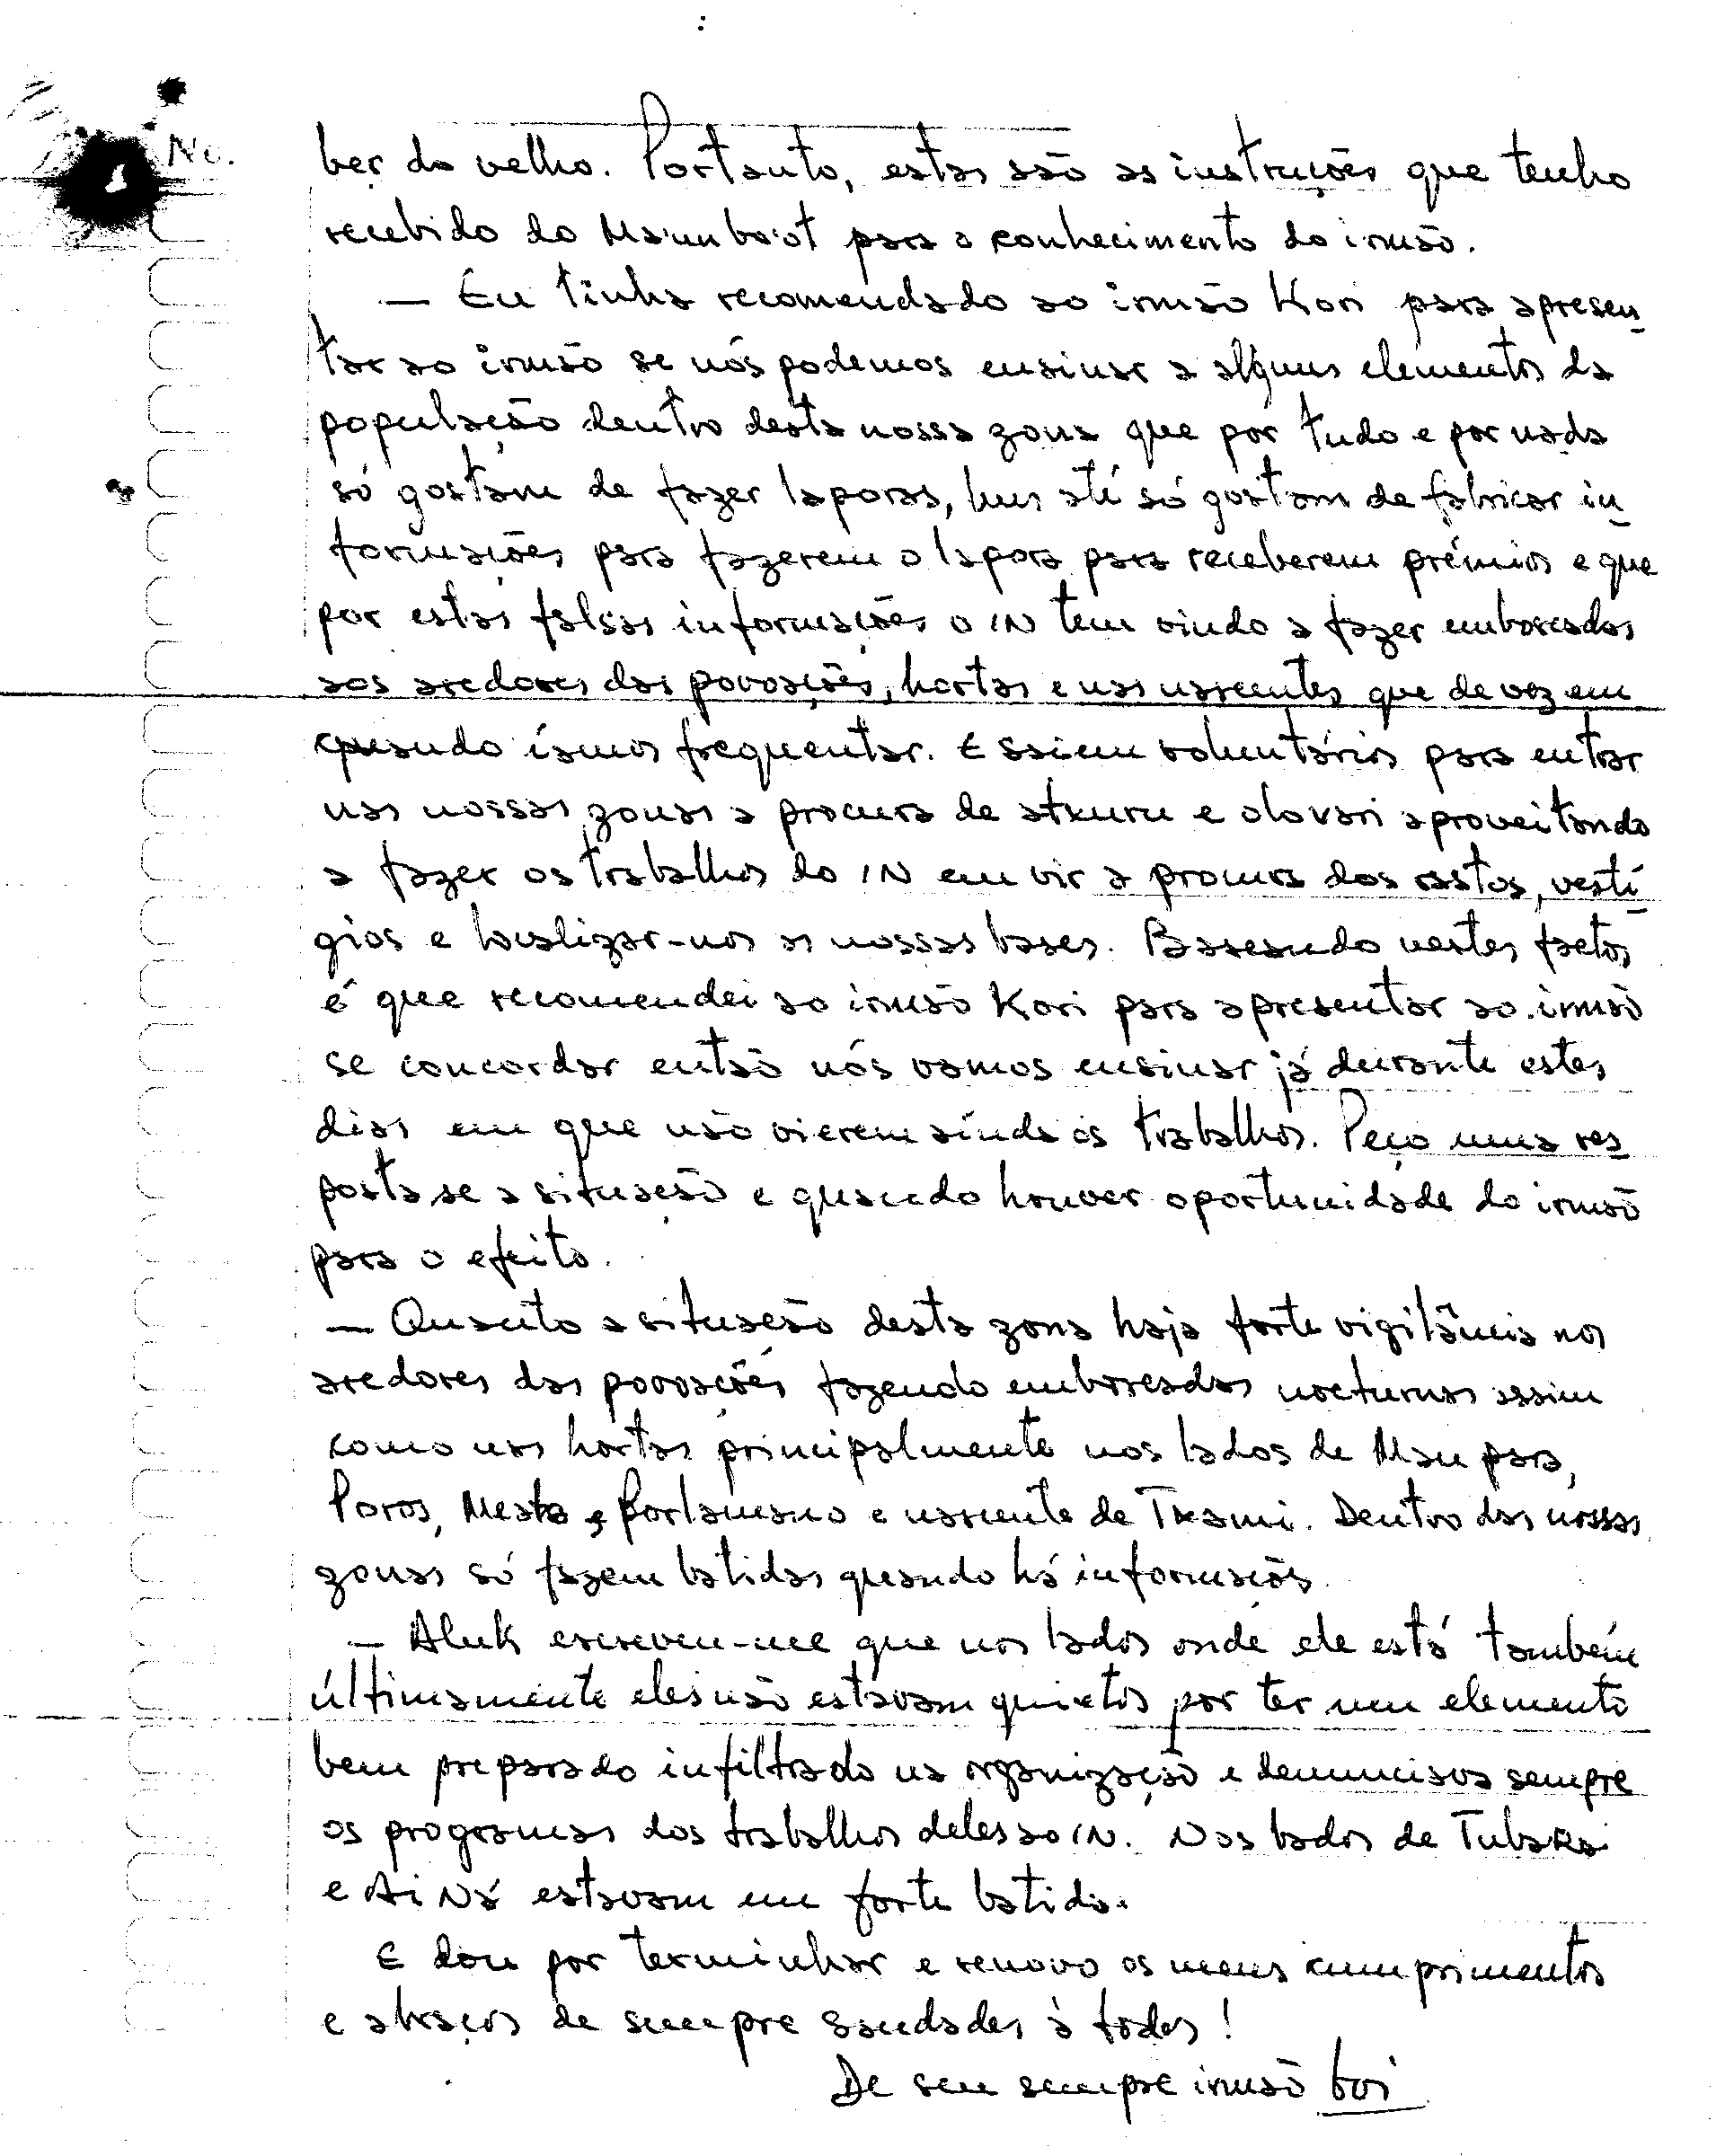 No.
ber do velho. Portanto, estas são as instruções que tenho
recebido do Ma'unbo'ot para o conhecimento do irmão.
— Eu tinha recomendado ao irmão Kori para apresen
tar ao irmão se nós podemos ensinar a alguns elementos da
população dentro desta nossa zona que por tudo e por nada
só gostam de fazer laporas, uns até só gostam de fabricar in
formações para fazerem o lapora para receberem prémios e que
por estas falsas informações o IN tem vindo a fazer emboscadas
aos aredores das povoações, hortas e nas nascentes que de vez em
quando íamos frequentar. E saiem voluntários para entrar
nas nossas zonas a procura de e aproveitando
a fazer os trabalhos do IN em vir a procura dos rastos, vestí
gios e localizar-nos as nossas bases. Baseando nestes factos
é que recomendei ao irmão Kori para apresentar ao irmão
se concordar então nós vamos ensinar já durante estes
dias em que não vierem ainda os trabalhos. Peço uma res
posta se a situação e quando houver oportunidade do irmão
para o efeito.
— Quanto a situação desta zona haja forte vigilância nos
aredores das povoações fazendo emboscadas nocturnas assim
como nas hortas principalmente nos lados de Maupara,
Poros, e nascente de Txami. Dentro das nossas
zonas só fazem batidas quando há informações.
— Aluk escreveu-me que nos lados onde ele está também
últimamente eles não estavam quietos por ter um elemento
bem preparado infiltrado na organização e denunciava sempre
os programas dos trabalhos deles ao IN. Nos lados de
e estavam em forte batida.
E dou por terminhar e renovo os meus cumprimentos
e abraços de sempre saudades à todos!
De seu sempre irmão